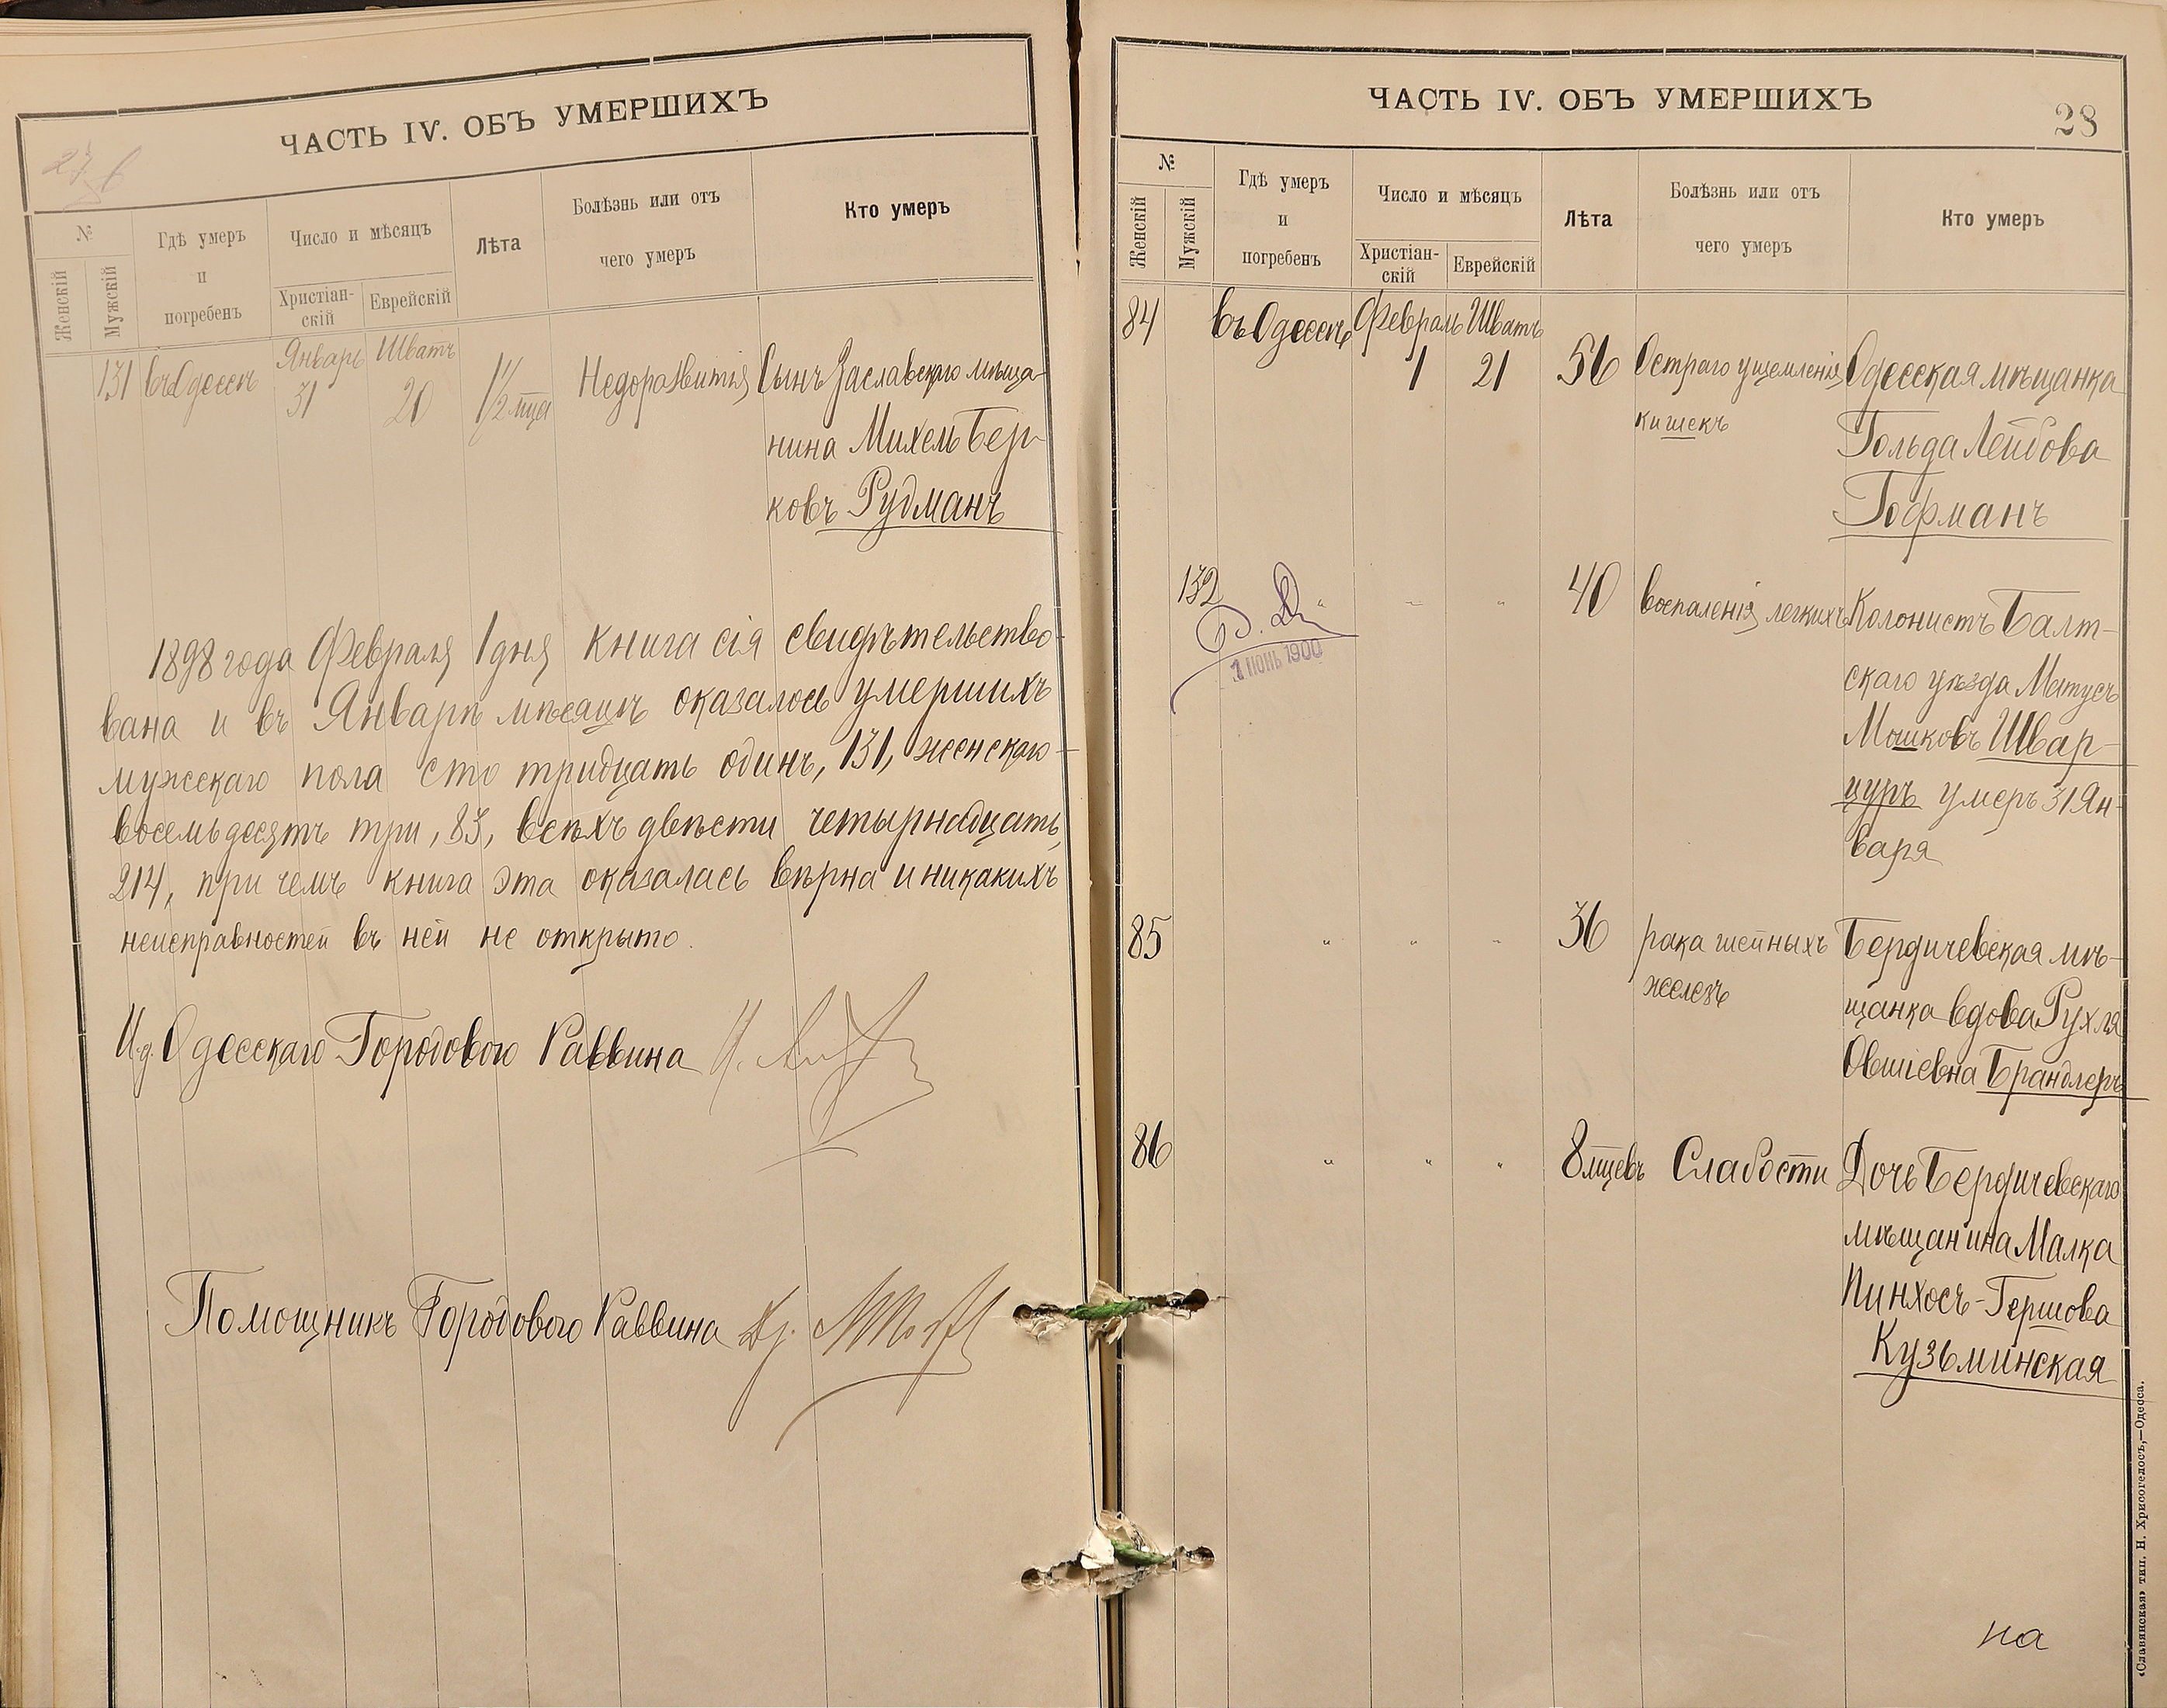 ЧАСТЬ IV. ОБЪ УМЕРШИХЪ
№
Женскій
Мужскій
Гдѣ умеръ
и
погребенъ
Число и мѣсяцъ
Христіан-
скій
Еврейскій
Лѣта
Болѣзнь или отъ
чего умеръ
Кто умеръ
131 въ Одессѣ Январь 31 Шватъ 20 1½ мца Недоразвитія Сынъ Заславскаго мѣща-
нина Михель Бер-
ковъ Рудманъ
1898 года Февраля 1 дня книга сія свидѣтельство-
вана и въ Январѣ мѣсяцѣ оказалось умершихъ
мужскаго пола сто тридцать одинъ, 131, женскаго
восемьдесятъ три, 83, всѣхъ двѣсти четырнадцать,
214, при чемъ книга эта оказалась вѣрна и никакихъ
неисправностей въ ней не открыто.
И.д. Одесскаго Городового Раввина
Помощникъ Городового Раввина
ЧАСТЬ IV. ОБЪ УМЕРШИХЪ
28
№
Женскій
Мужскій
Гдѣ умеръ
и
погребенъ
Число и мѣсяцъ
Христіан-
скій
Еврейскій
Лѣта
Болѣзнь или отъ
чего умеръ
Кто умеръ
84 въ Одессѣ Февраль 1 Шватъ 21 56 Остраго ущемленія Одесская мѣщанка
кишекъ Гольда Лейбова
Гофманъ
132 " " " 40 Воспаленія легкихъ Колонистъ Балт-
1 ІЮНЬ 1900
скаго уѣзда Матусъ
Мошковъ Швар-
цуръ умеръ 31 Ян-
варя
85 " " " 36 рака шейныхъ Бердичевская мѣ-
железъ щанка вдова Рухля
Овшіевна Брандлеръ
86 " " " 8 мцевъ Слабости Дочь Бердичевскаго
мѣщанина Малка
Пинхосъ-Гершова
Кузьминская
на
«Славянская» тип. Н. Хрисогелосъ,—Одесса.